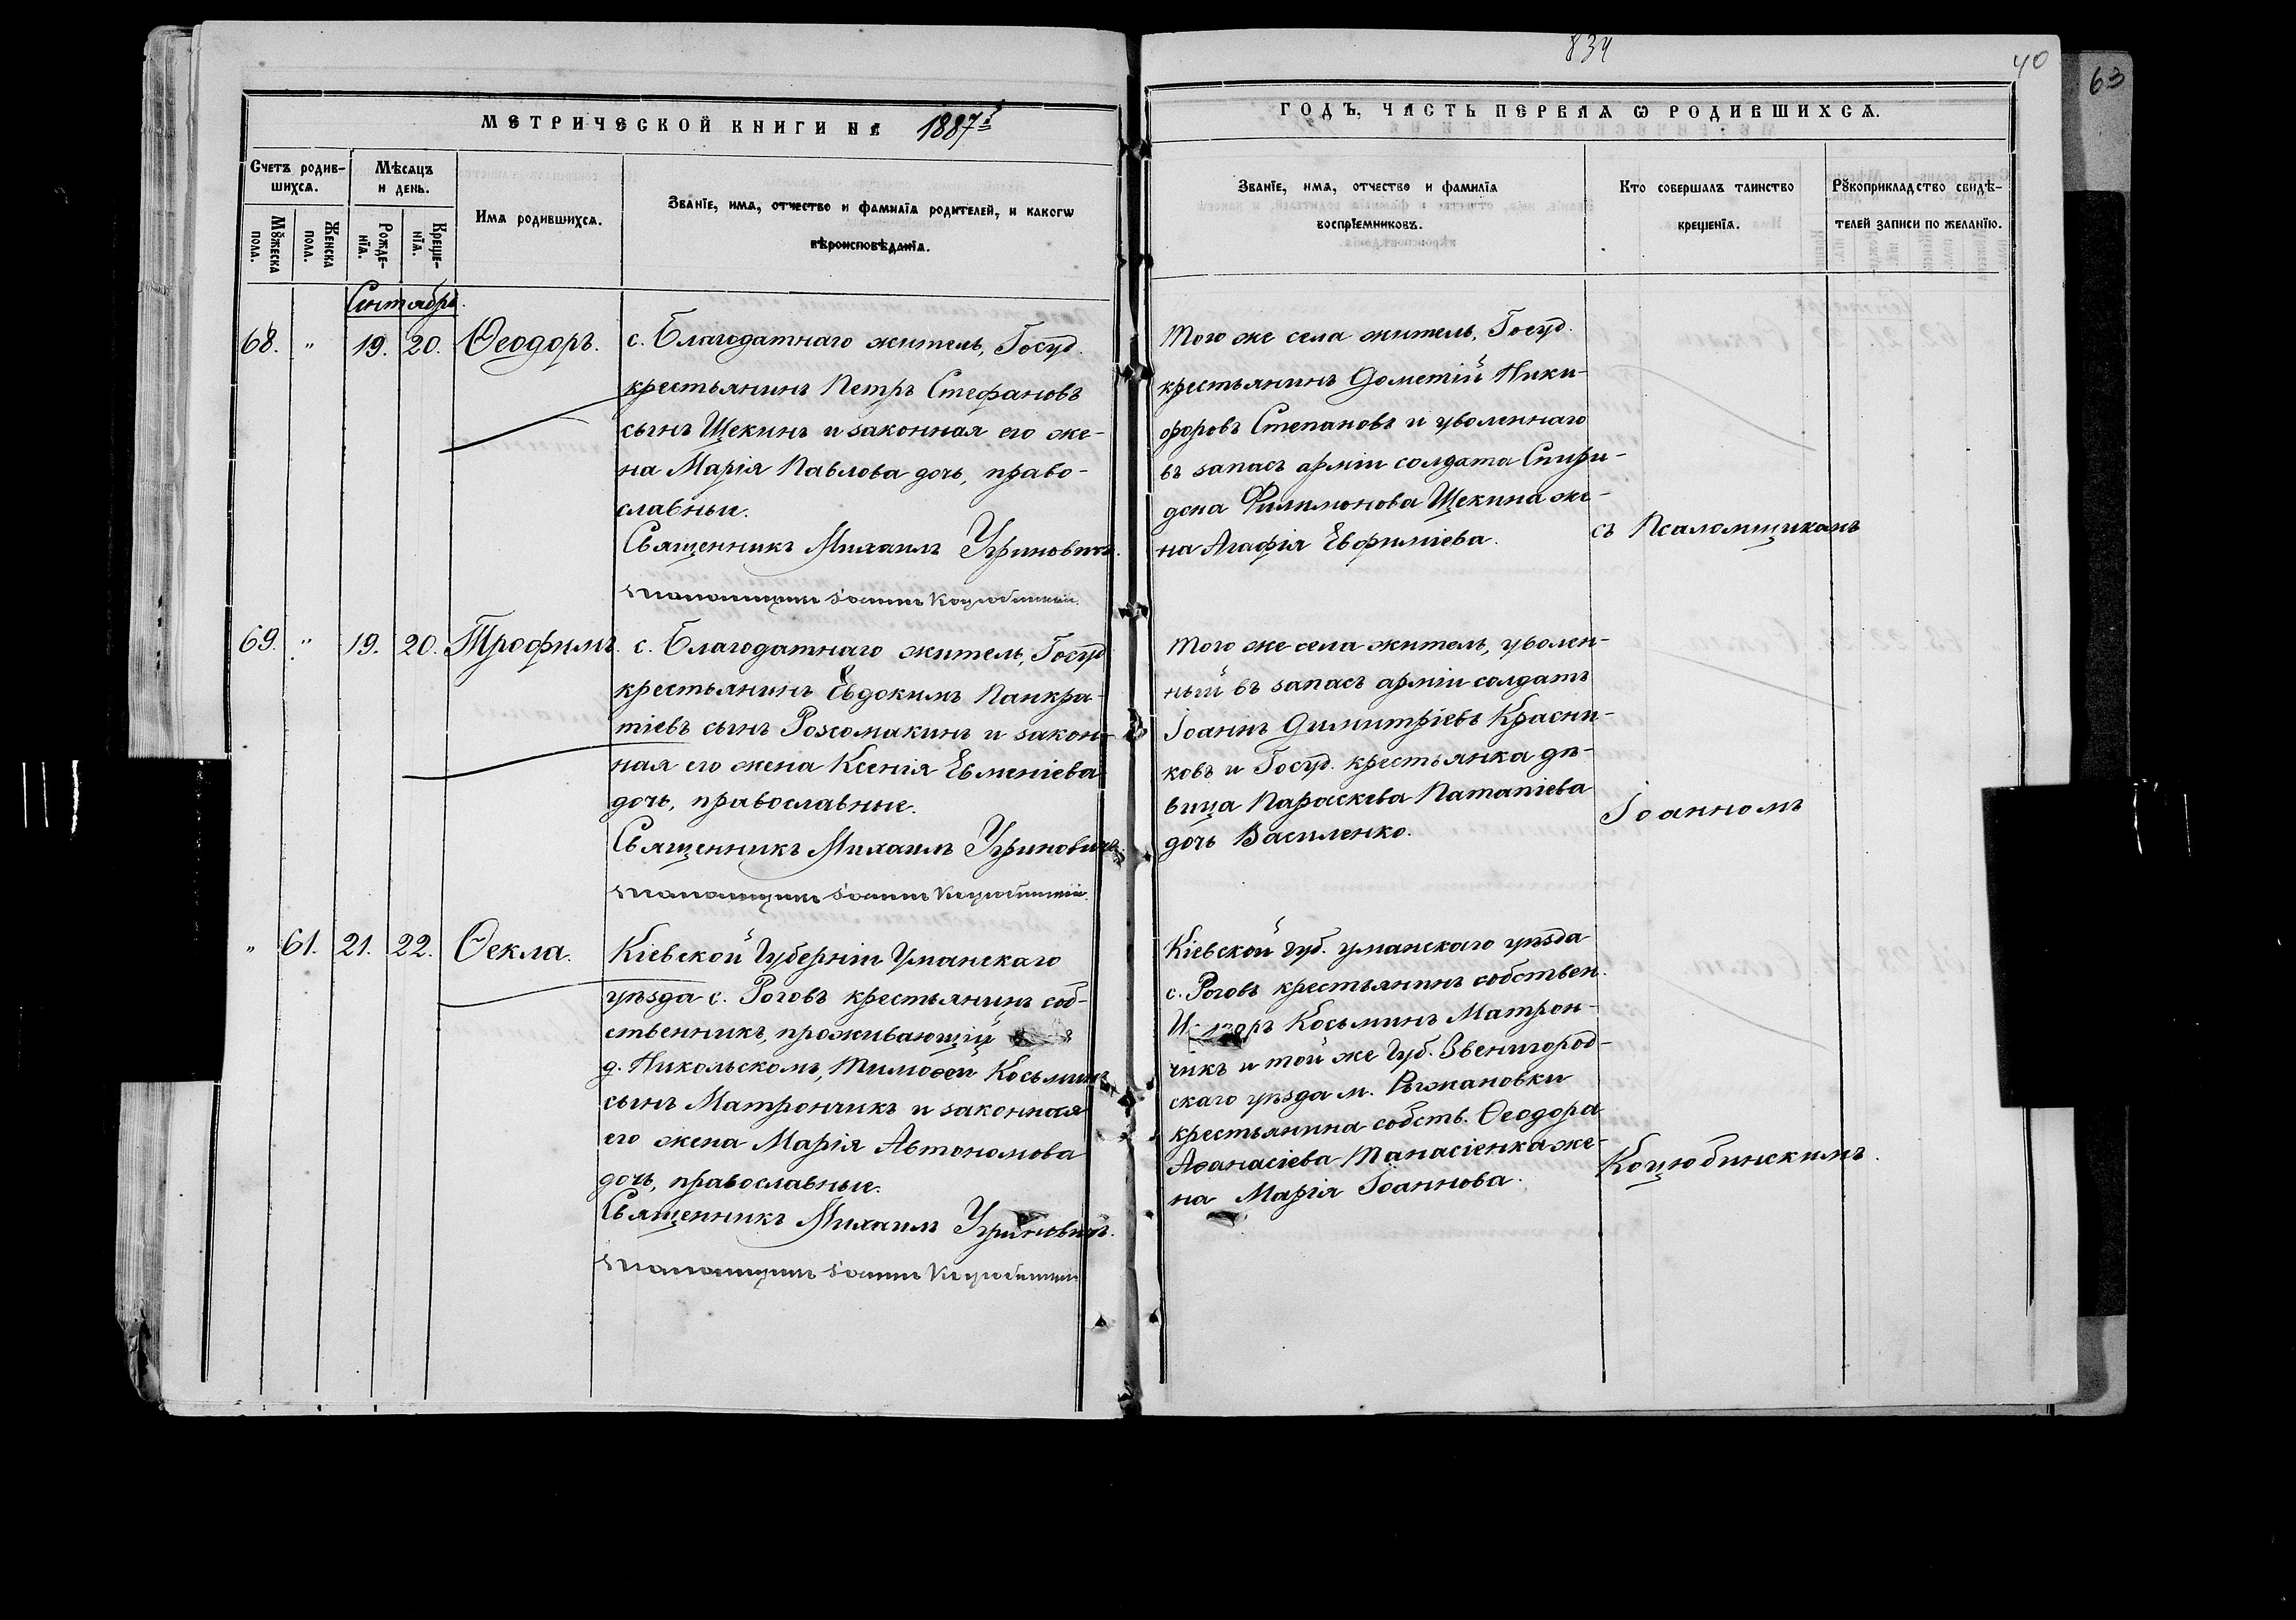 834
40
63
МЕТРИЧЕСКОЙ КНИГИ НА 1887й
ГОДЪ, ЧАСТЬ ПЕРВАЯ Ѡ РОДИВШИХСѦ.
Счетъ родив-
шихсѧ.
Мѣсѧцъ
и день.
Мꙋжеска
пола.
Женска
пола.
Рожде-
нїѧ.
Креще-
нїѧ.
Имѧ родившихсѧ.
Званїе, имѧ, отчество и фамилїѧ родителей, и какогѡ
вѣроисповѣданїѧ.
Званїе, имѧ, отчество и фамилїѧ
воспрїемниковъ.
Кто совершалъ таинство
крещенїѧ.
Рꙋкоприкладство свидѣ-
телей записи по желанїю.
Сентябрь.
68. " 19. 20. Ѳеодоръ.
с. Благодатнаго житель, Госуд.
крестьянинъ Петръ Стефановъ
сынъ Щекинъ и законная его же-
на Марія Павлова дочь, право-
славные.
Священникъ Михаилъ Угриновичъ.
Псаломщикъ Іоаннъ Коцюбинскій.
Того же села житель, Госуд.
крестьянинъ Дометій Ники-
форовъ Степановъ и уволеннаго
въ запасъ арміи солдата Спири-
дона Филимонова Щекина же-
на Агафія Евфиміева.
съ Псаломщикомъ
69. " 19. 20. Трофимъ.
с. Благодатнаго житель, Госуд.
крестьянинъ Евдокимъ Панкра-
тіевъ сынъ Рохомакинъ и закон-
ная его жена Ксенія Евменіева
дочь, православные.
Священникъ Михаилъ Угриновичъ.
Псаломщикъ Іоаннъ Коцюбинскій.
Того же села житель, уволен-
ный въ запасъ арміи солдатъ
Іоаннъ Димитріевъ Красни-
ковъ и Госуд. крестьянка дѣ-
вица Параскева Патапіева
дочь Василенко.
Іоанномъ
" 61. 21. 22. Ѳекла.
Кіевской Губерніи Уманскаго
уѣзда с. Роговъ крестьянинъ соб-
ственникъ, проживающій
д. Никольскомъ, Тимоѳей Косьминъ
сынъ Матрончикъ и законная
его жена Марія Автономова
дочь, православные.
Священникъ Михаилъ Угриновичъ.
Псаломщикъ Іоаннъ Коцюбинскій
Кіевской губ. уманскаго уѣзда
с. Роговъ крестьянинъ собствен.
Косьминъ Матрон-
чикъ и той же Губ. Звенигород-
скаго уѣзда м. Рыжановки
крестьянина собств. Ѳеодора
Аѳанасіева Танасіенка же-
на Марія Іоаннова.
Коцюбинскимъ.